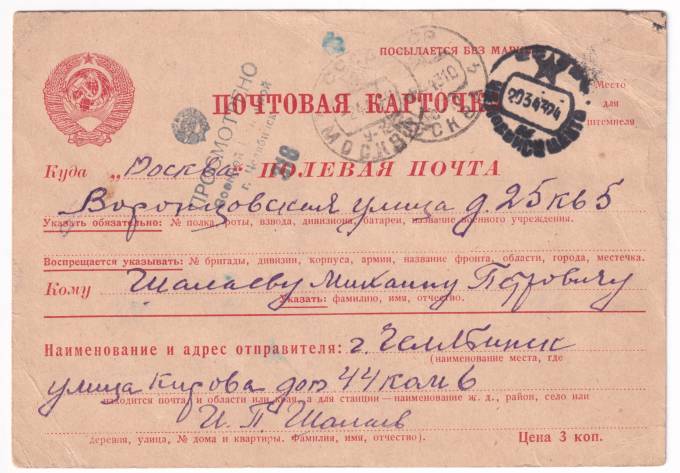 ПОСЫЛАЕТСЯ БЕЗ МАРКИ
ПОЧТОВАЯ КАРТОЧКА
Место
для
штемпеля
ПРОСМОТРЕНО
Военной Цензурой
г. Челябинск
СССР
МОСКВА
МОСКВА
Куда „Москва" ПОЛЕВАЯ ПОЧТА
Воронцовская улица д. 25 кв 5
Указать обязательно: № полка, роты, взвода, дивизиона, батареи, название военного учреждения.
Воспрещается указывать: № бригады, дивизии, корпуса, армии, название фронта, области, города, местечка.
Кому Шалаеву Михаилу Петровичу
Указать: фамилию, имя, отчество.
Наименование и адрес отправителя: г. Челябинск
(наименование места, где
улица Кирова дом 44 ком 6
находится почта, и области или края, а для станции—наименование ж. д., район, село или
И. П. Шалаев
деревня, улица, № дома и квартиры. Фамилия, имя, отчество).
Цена 3 коп.